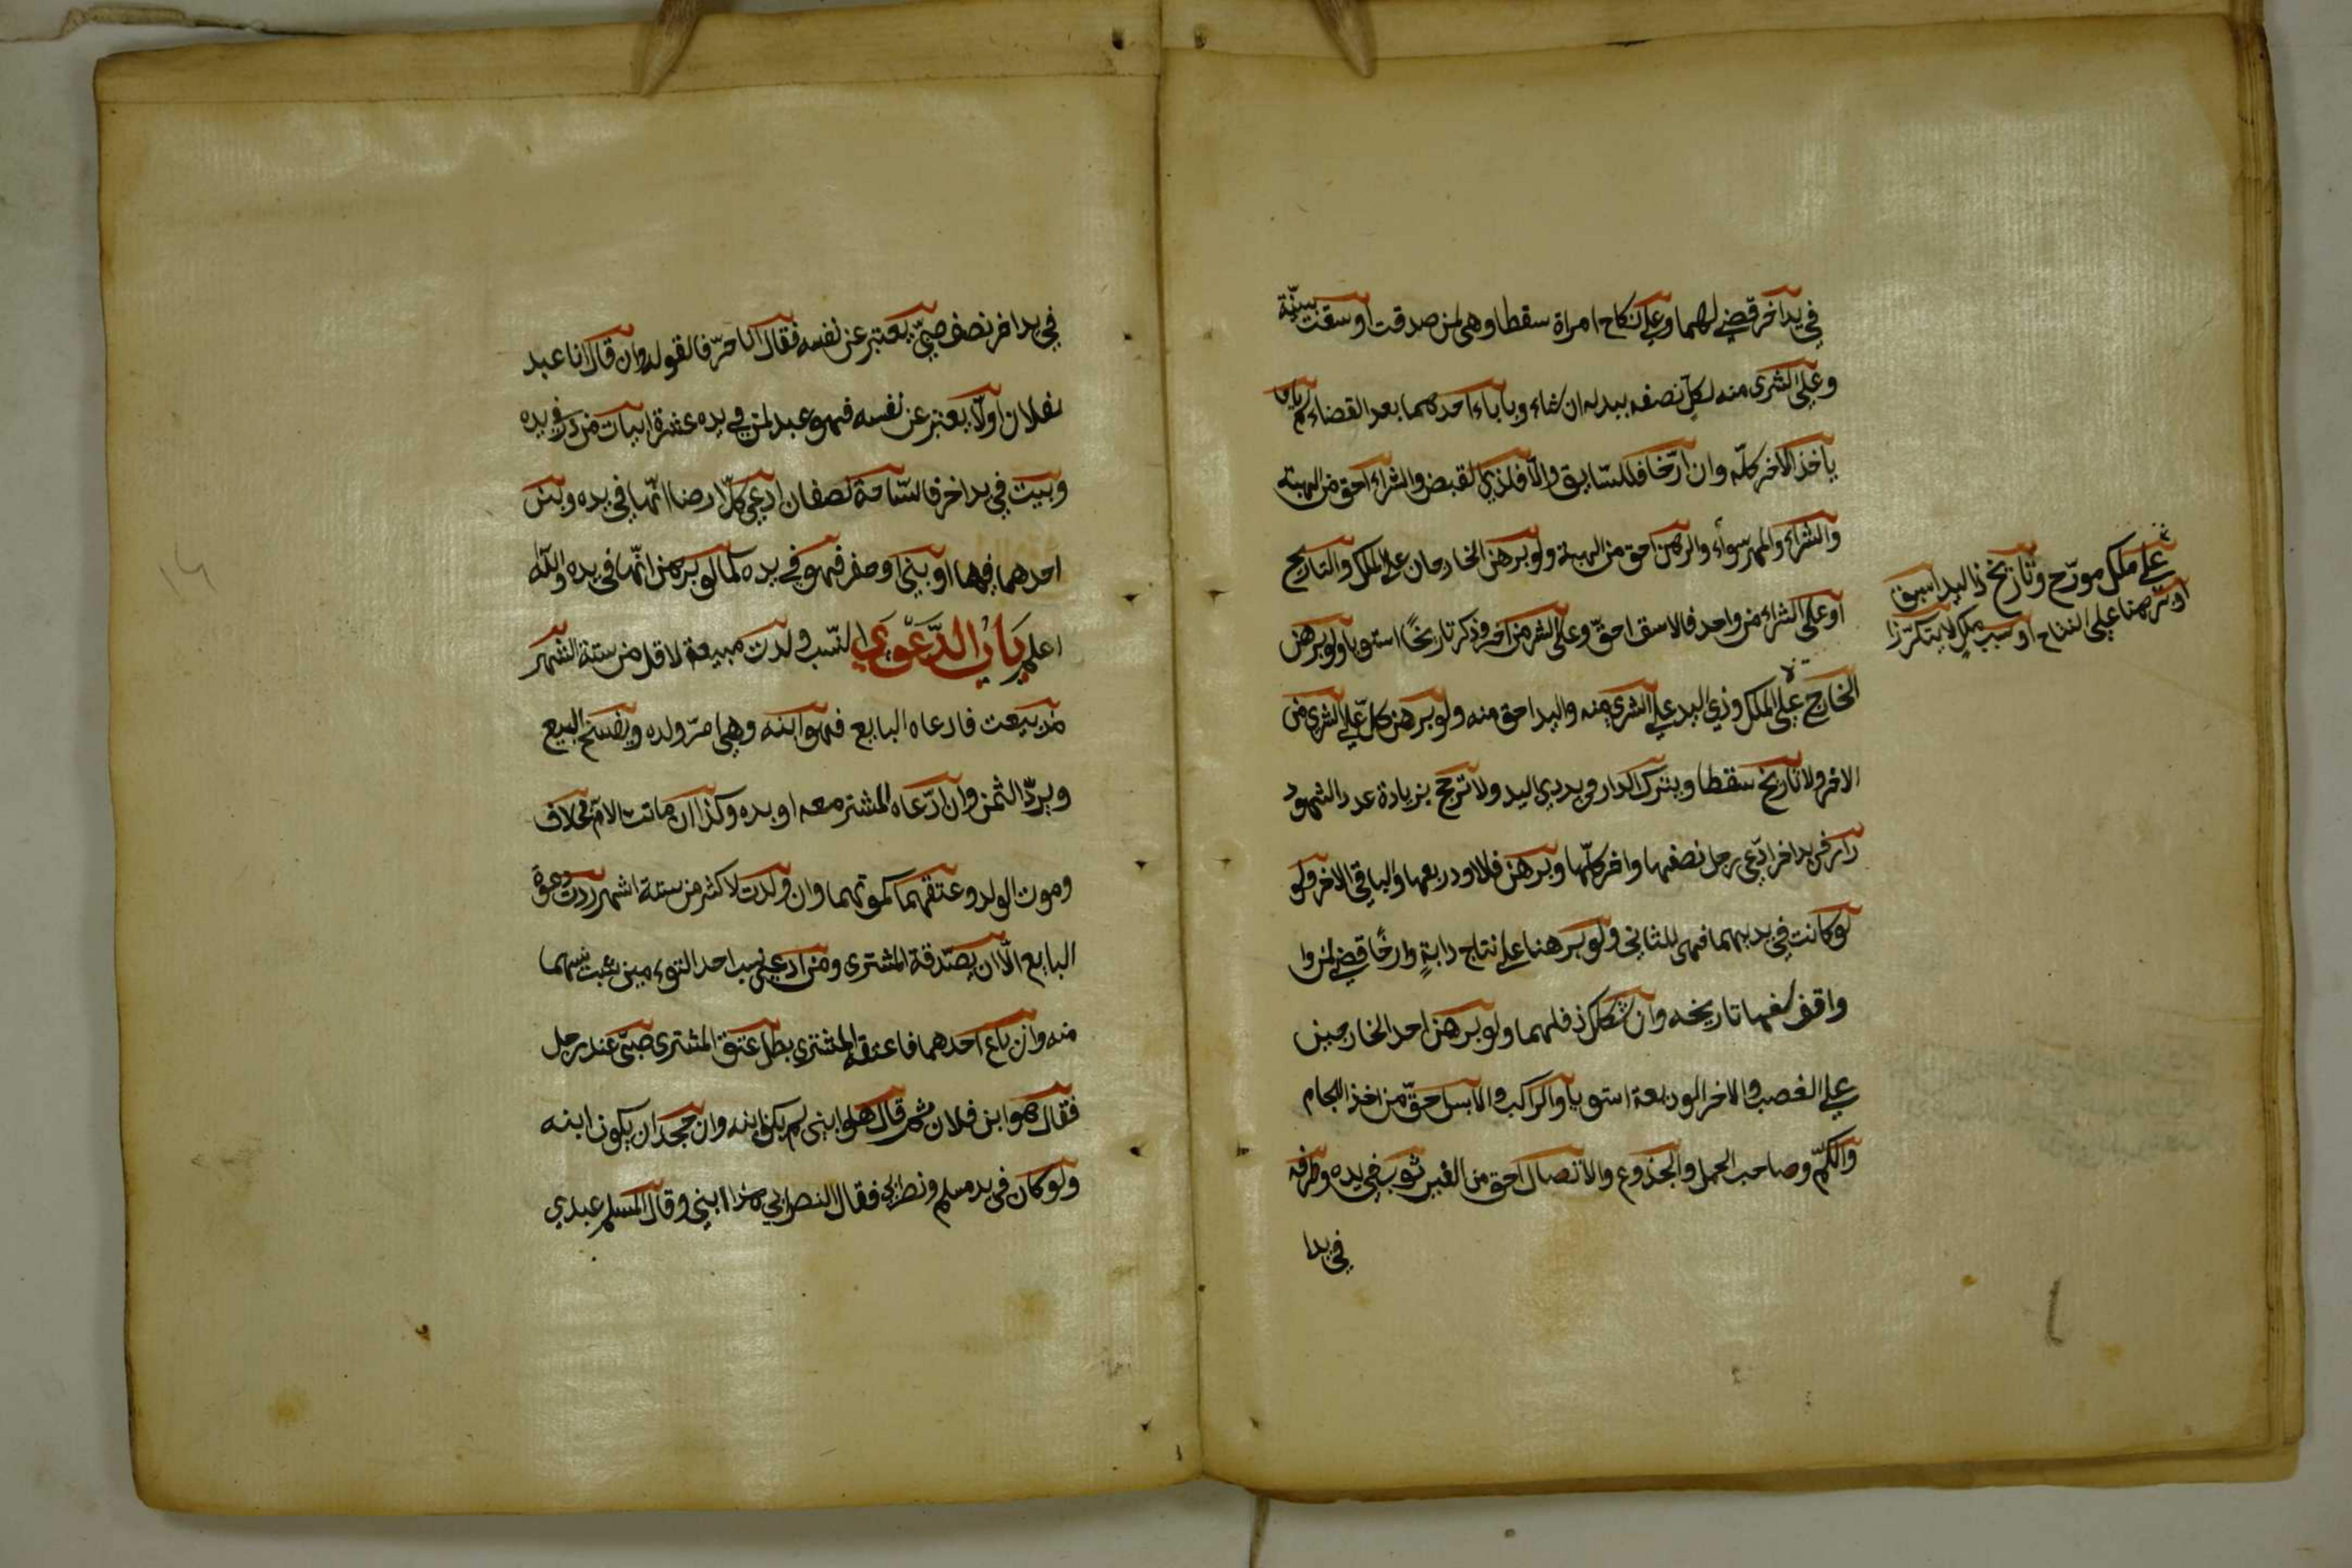 في يد اخر قضي لهما وعلى نكاح امراة سقطا وهي لمن صدقت او سقت بينّة
وعلى الشرى منه لكلّ نصفه ببدله ان شاء وباباء احدهما بعد القضاء لم
ياخذ الاخر كلّه وان ارّخا فللسّابق والّا فلذي القبض والشراء احق من الهبة
والشراء والمهر سواء والرهن احق من الهبة ولو برهن الخارجان على الملك والتاريخ
او على الشراء من واحد فالاسبق احقّ وعلى الشر من اخر وذكر تاريخًا استويا ولو برهن
على ملك مورّخ وتاريخ ذا اليد اسبق
او برهنا على النتاج او سبب ملك لا يتكرّر ذا
الخارج على الملك وذي اليد على الشرى منه واليد احق منه ولو برهن كلّ على الشرى من
الاخر ولا تاريخ سقطا ويترك الدار في يد ذي اليد ولا ترجح بزيادة عدد الشهود
دار في يد اخر ادّعى رجل نصفها واخر كلّها وبرهن فللاول ربعها والباقي الاخر ولو
لو كانت في يديهما فهي للثاني ولو برهنا على نتاج دابةٍ وارخًا قضي لمن وا
وافق سنها تاريخه وان شكل ذ فلهما ولو برهن احد الخارجين
على الغصب والاخر الوديعة استويا والراكب والابس احقّ من اخذ اللجام
والكمّ وصاحب الحمل والجذوع والاتصال احق من الغير ثوب في يده وطرفه
في يد ا
في يد اخر نصف صبيّ يعتبر عن نفسه فقال انا حرّ فالقول له وان قال انا عبد
لفلان او لا يعتبر عن نفسه فهو عبد لمن في يده عشرة ابيات من دار في يده
وبيت في يد اخر فالسّاحة نصفان ادعى كلّ ارضا انّها في يده ولبن
احدهما فيها او بنى او حفر فهو في يده كما لو برهن انّها في يده والله
اعلم باب الدّعوى النّسب ولدت مبيعة لاقل من ستة اشهر
مذ بيعت فادعاه البايع فهو ابنه وهي امّ ولده ويفسخ البيع
ويردّ الثمن وان ادّعاه المشتر معه او بعده وكذا ان ماتت الامّ بخلاف
وموت الولد وعتقهما كموتهما وان ولدت لاكثر من ستة اشهر ردت دعوة
البايع الّا ان يصّدقة المشترى ومن ادعى نسب احد التوءمين ثبت نسبهما
منه وان باع احدهما فاعتقه المشترى بطل عتق المشترى صبّى عند رجل
فقال هو ابن فلان ثم قال هو ابني لم يكن ابنه وان جحد ان يكون ابنه
ولو كان في يد مسلم ونصراني فقال النصراني هذا ابني وقال المسلم عبدي